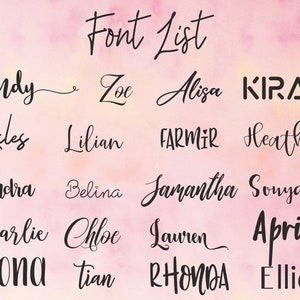 Font List
ndy Zoe Alisa KIRA
les Lilian FARMiR Heath
dra Belina Samantha Sonya
arlie Chloe Lauren April
ona tian RHONDA Ellie